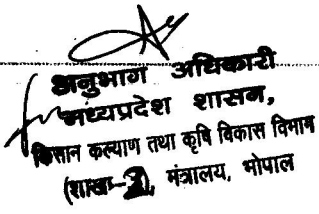 अनुभाग अधिकारी
मध्यप्रदेश शासन,
किसान कल्याण तथा कृषि विकास विभाग
(शाखा-2), मंत्रालय, भोपाल